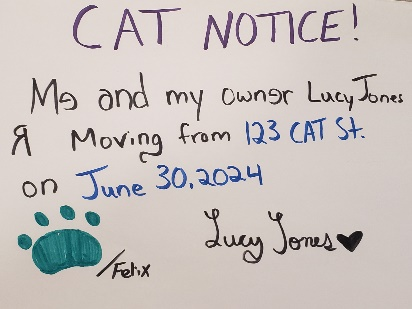 CAT NOTICE!
Me and my owner Lucy Jones
Я Moving from 123 CAT St.
on June 30, 2024
/Felix
Lucy Jones